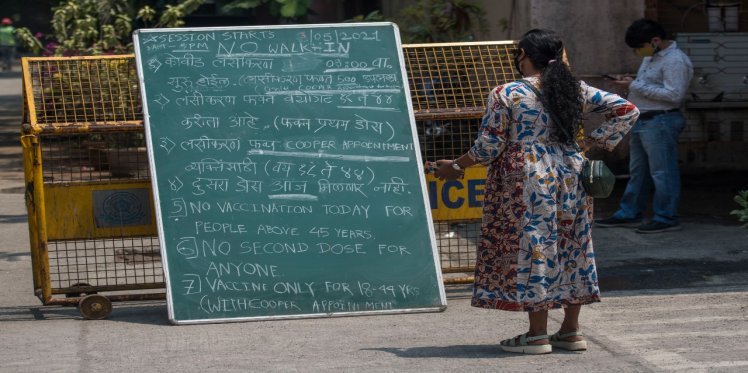 SESSION STARTS 3/05/2021
9AM - 5PM NO WALK-IN
१) कोवीड लसीकरण 09:00 वा.
सुरू होईल. (लसीकरण फक्त 500
२) लसीकरण फक्त वयोगट १८ ते ४४
करीता आहे.. (फक्त प्रथम डोस)
३) लसीकरण फक्त COOPER APPOINTMENT
व्यक्तिंसाठी (वय १८ ते ४४)
४) दुसरा डोस आज मिळणार नाही.
5) NO VACCINATION TODAY FOR
PEOPLE ABOVE 45 YEARS.
6) NO SECOND DOSE FOR
ANYONE.
7) VACCINE ONLY FOR 18-44 YRS
(WITH COOPER APPOINTMENT
ICE